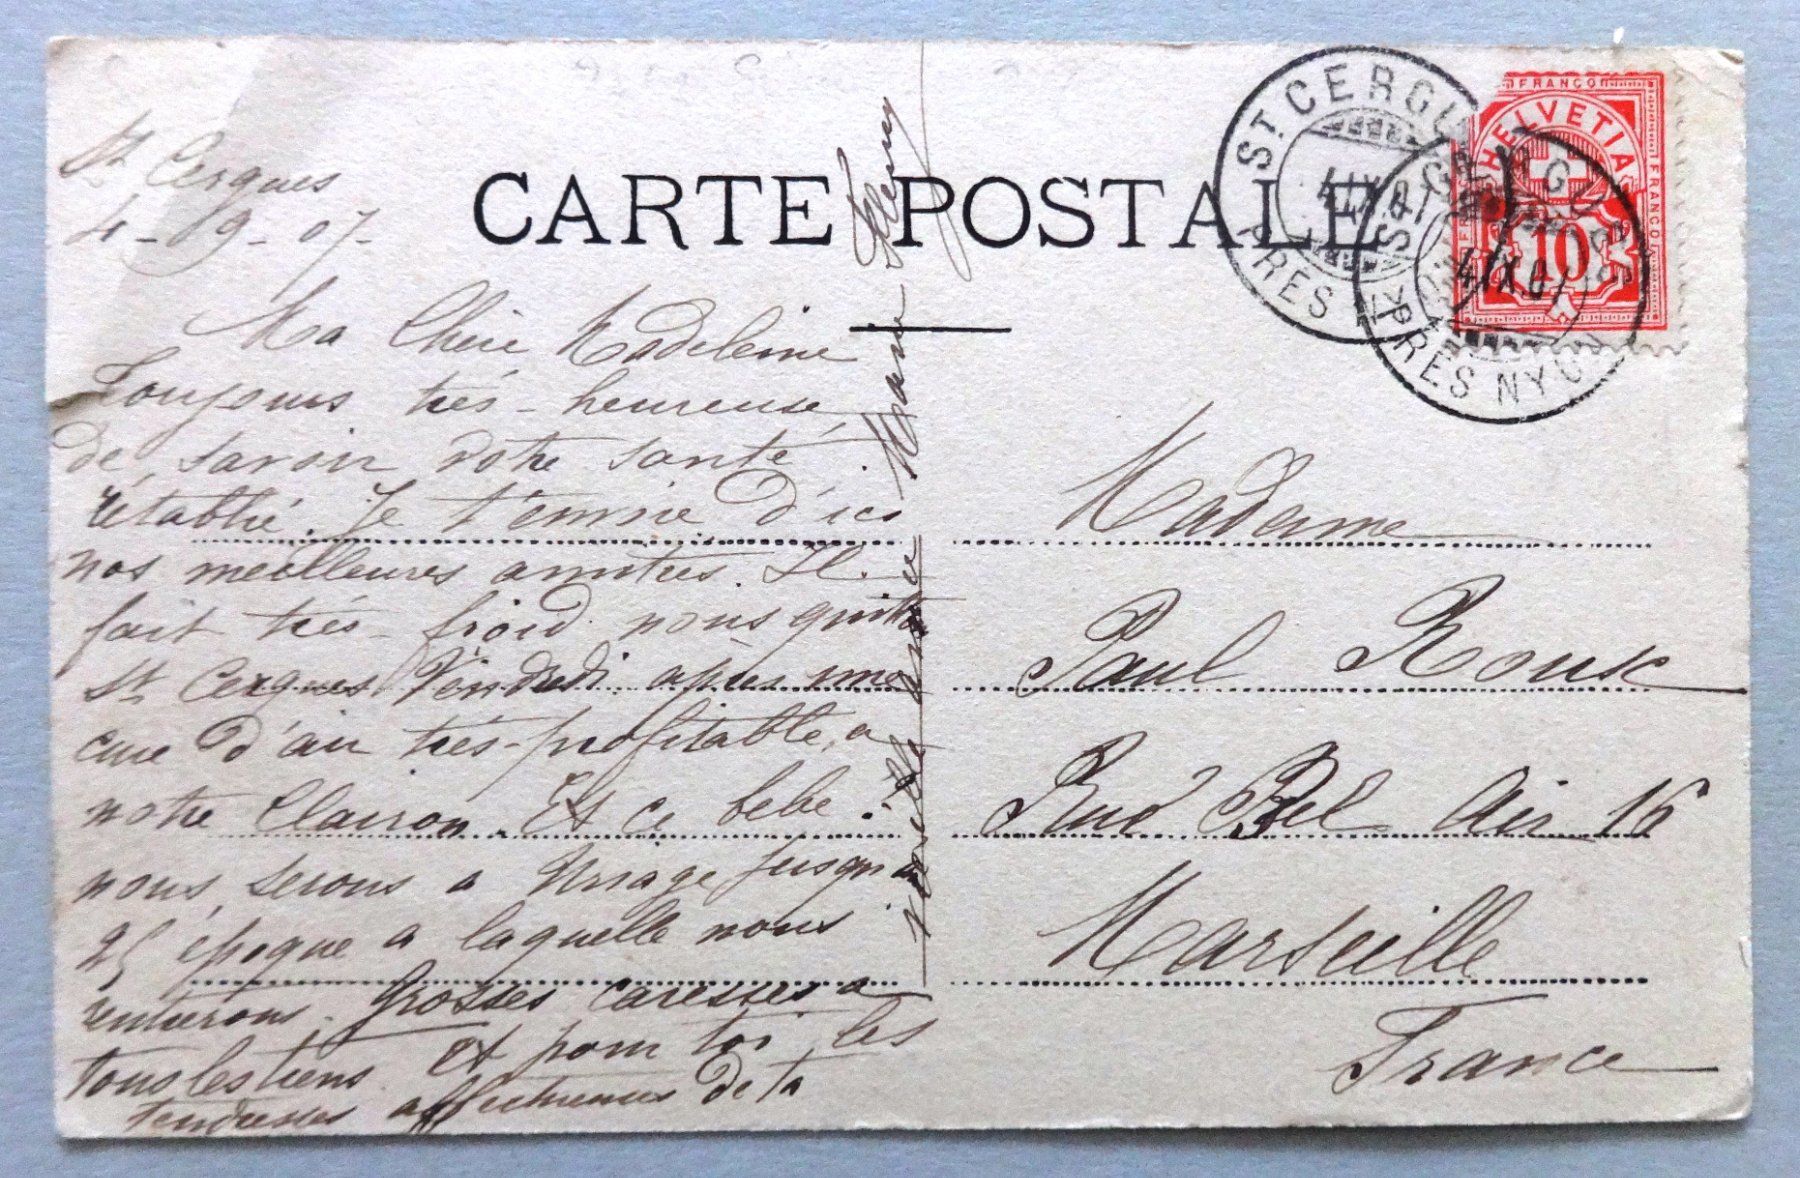 CARTE POSTALE
St Cergues
4-09-07-
Ma Chère Madeleine
Toujours trés-heureuse
de savoir votre santé
rétablie. Je t'envoie d'ici
nos meilleures amitiés. Il
fait trés-froid. nous quittons
St Cergues Vendredi après une
cure d'air trés-profitable, a
notre Clairon. Et ce bebe.
nous serons a Uriage jusqu'au
25 époque a laquelle nous
rentrerons. Grosses caresses a
tous les tiens. Et pour toi les
tendresses affectueuses de ta
vieille amie Marie
Madame
Paul Roux
Rue Bel Air 16
Marseille
France
ST CERGUES
4.IX.07
PRÈS NYON
ST CERGUES
4.IX.07
PRÈS NYON
FRANCO
HELVETIA
FRANCO
FRANCO
10